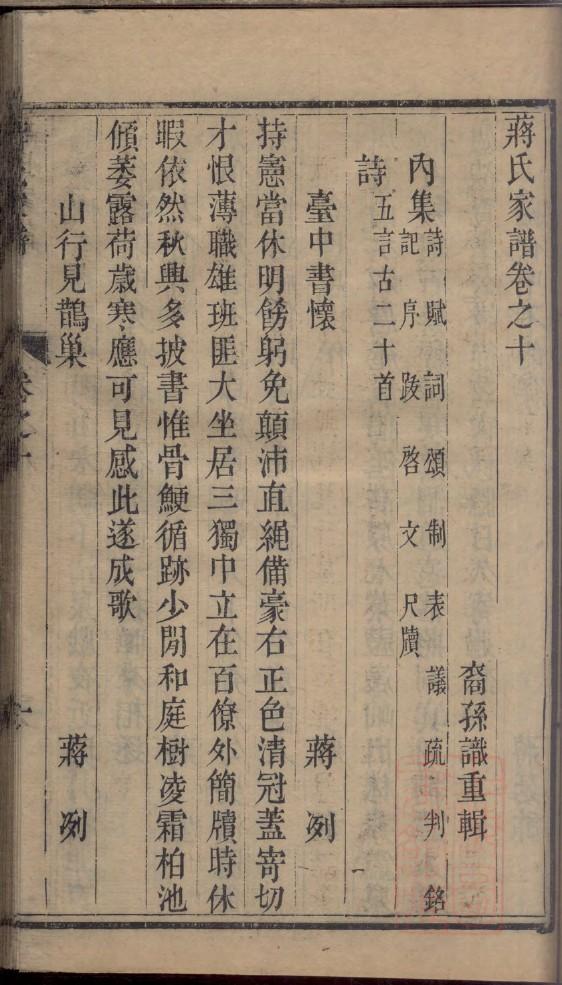 蔣氏家譜卷之十
裔孫識重輯
內集詩賦詞頌制表議疏判銘
記序跋啓文尺牘
詩五言古二十首
臺中書懷 蔣洌
持憲當休明餝躬免顛沛直繩備豪右正色清冠蓋寄切
才恨薄職雄班匪大坐居三獨中立在百僚外簡牘時休
暇依然秋興多披書惟骨鯁循跡少閒和庭樹凌霜柏池
傾萎露荷歲寒應可見感此遂成歌
山行見鵲巢 蔣洌
卷之十
一